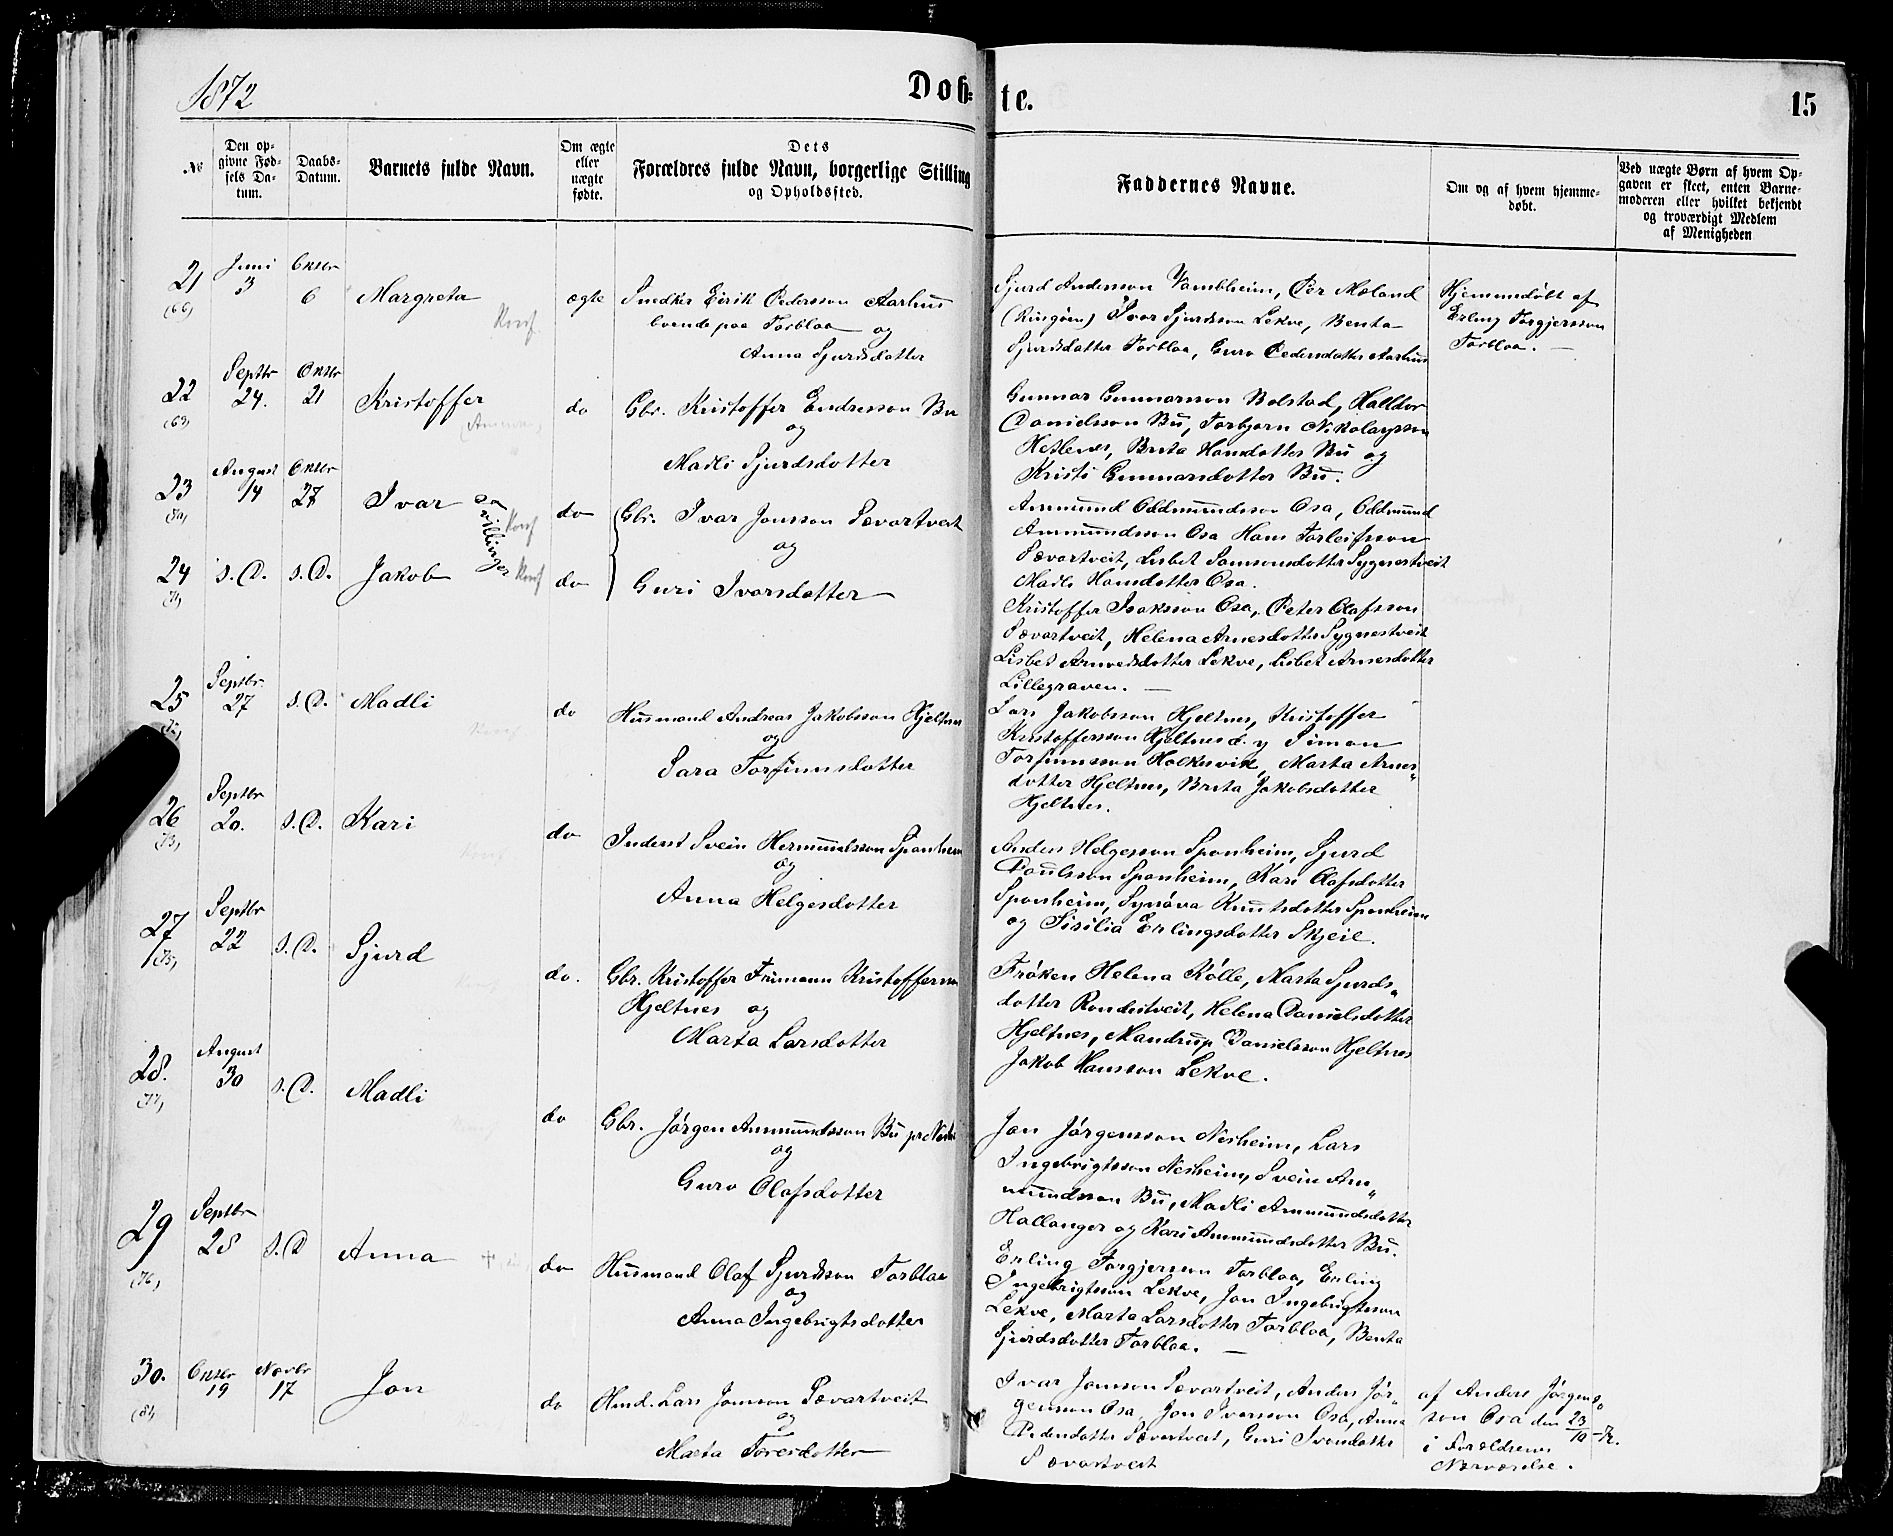 1872
Døb=
te.
15
№
Den op-
givne Fød-
sels Da-
tum.
Daabs-
Datum.
Barnets fulde Navn.
Om ægte
eller
uægte
fødte.
Dets
Forældres fulde Navn, borgerlige Stilling
og Opholdssted.
Faddernes Navne.
Om og af hvem hjemme-
døbt.
Ved uægte Børn af hvem Op-
gaven er skeet, enten Barne-
moderen eller hvilket bekjendt
og troværdigt Medlem
af Menigheden
21
(66)
Juni
3
Oktbr
6
Margreta
Konf
ægte
Snedker Eirik Pedersson Aarhus
boende paa Torbloa og
Anna Sjurdsdotter
Sjurd Andersson Vambheim, Per Mæland
(Ringøen) Ivar Sjurdsson Lekve, Benta
Sjurdsdotter Torbloa, Guro Pedersdotter Aarhus
Hjemmedøbt af
Erling Torgjersson
Torbloa.
22
(63)
Septbr
24.
Oktbr
21
Kristoffer
do
Gbr. Kristoffer Endresson Bu
og
Madli Sjurdsdotter
Gunnar Gunnarsson Bolstad, Halldor
Danielsson Bu, Torbjørn Nikolaysson
Hetlenes, Brita Hansdotter Bu og
Kristi Gunnarsdotter Bu.
23
August
14
Oktbr
27
Ivar
Tvillinger
Konf
do
Gbr. Ivar Jonsson Sævartveit
og
Ammund Oddmundsson Osa, Oddmund
Ammundsson Osa Hans Torleifsson
Sævartveit, Lisbet Samsonsdotter Sygnestveit
Madli Hansdotter Osa.
24
s.D.
s.D.
Jakob
Konf
do
Guri Ivarsdotter
Kristoffer Isaksson Osa, Peter Olafsson
Sævartveit, Helena Arnesdotter Sygnestveit
Lisbet Arnvedsdotter Lekve, Lisbet Arnesdotter
Lillegraven.
25
Septbr.
27
s.D.
Madli
do
Husmand Andreas Jakobsson Hjeltnes
og
Sara Torfinnsdotter
Lars Jakobsson Hjeltnes, Kristoffer
Kristoffersson Hjeltnes d. y Simon
Torfinnsson Holksvik, Marta Arnes„
dotter Hjeltnes, Brita Jakobsdotter
Hjeltnes.
26
(73)
Septbr
20.
s.D.
Kari
do
Inderst Svein Hermundsson Sponheim
og
Anna Helgesdotter
Anders Helgesson Sponheim, Sjurd
Poulsson Sponheim, Kari Olafsdotter
Sponheim, Synøva Knutsdotter Sponheim
og Sisilia Erlingsdotter Skjeie.
27
(75)
Septbr
22
s.D.
Sjurd
do.
Gbr. Kristoffer Frimann Kristoffersson
Hjeltnes og
Marta Larsdotter
Frøken Helena Kølle, Marta Sjurds„
dotter Rondestveit, Helena Danielsdotter
Hjeltnes, Mandrup Danielsson Hjeltnes
Jakob Hansson Lekve.
28.
(77)
August
30
s.D.
Madli
do
Gbr. Jørgen Ammundsson Bu
og
Guro Olafsdotter
Jon Jørgensson Nesheim, Lars
Ingebrigtsson Nesheim, Svein Am„
mundsson Bu, Madli Ammundsdotter
Hallanger og Kari Ammundsdotter Bu.
29
(76)
Septbr
28
s.D
Anna
do
Husmand Olaf Sjurdsson Torbloa
og
Anna Ingebrigtsdotter
Erling Torgjersson Torbloa, Erling
Ingebrigtsson Lekve, Jon Ingebrigtsson
Lekve, Marta Larsdotter Torbloa, Benta
Sjurdsdotter Torbloa.
30.
(81)
Oktbr
19
Novbr
17
Jon
do
Hmd. Lars Jonsson Sævartveit
og
Marta Toresdotter
Ivar Jonsson Sævartveit, Anders Jør„
gensson Osa, Jon Ivarsson Osa, Anna
Pedersdotter Sævartveit, Guri Ivarsdotter
Sævartveit
af Anders Jørgens„
son Osa den 23/10 72.
i Forældrenes
Nærværelse.